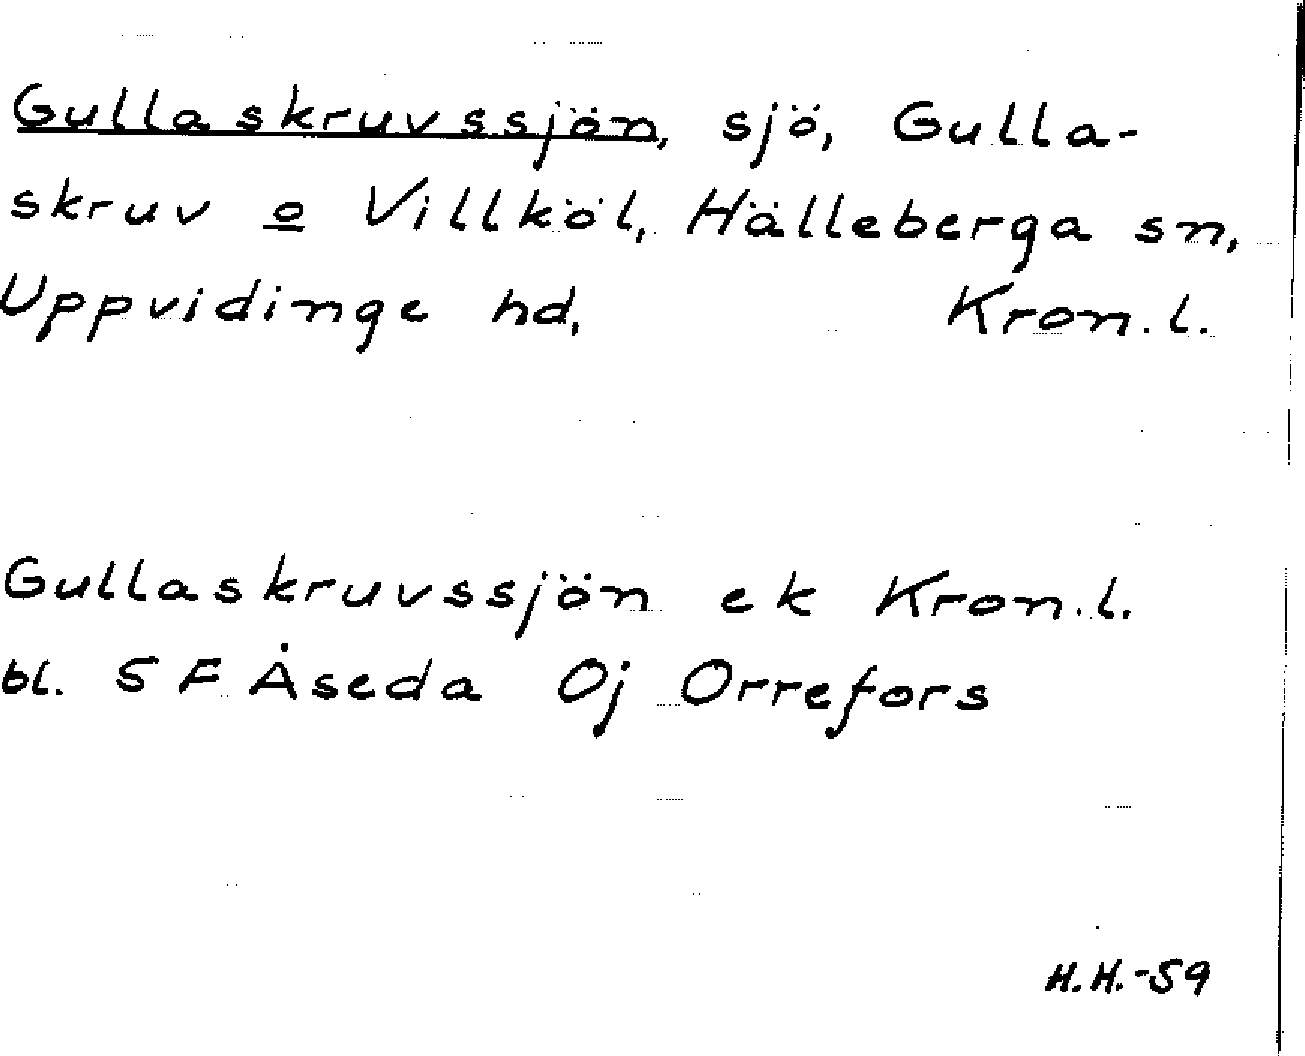 Gullaskruvssjön, sjö, Gulla-
skruv o Villköl, Hälleberga sn,
Uppvidinge hd, Kron. l.
Gullaskruvssjön ek Kron. l.
bl. 5 F Åseda Oj Orrefors
H.H.-59